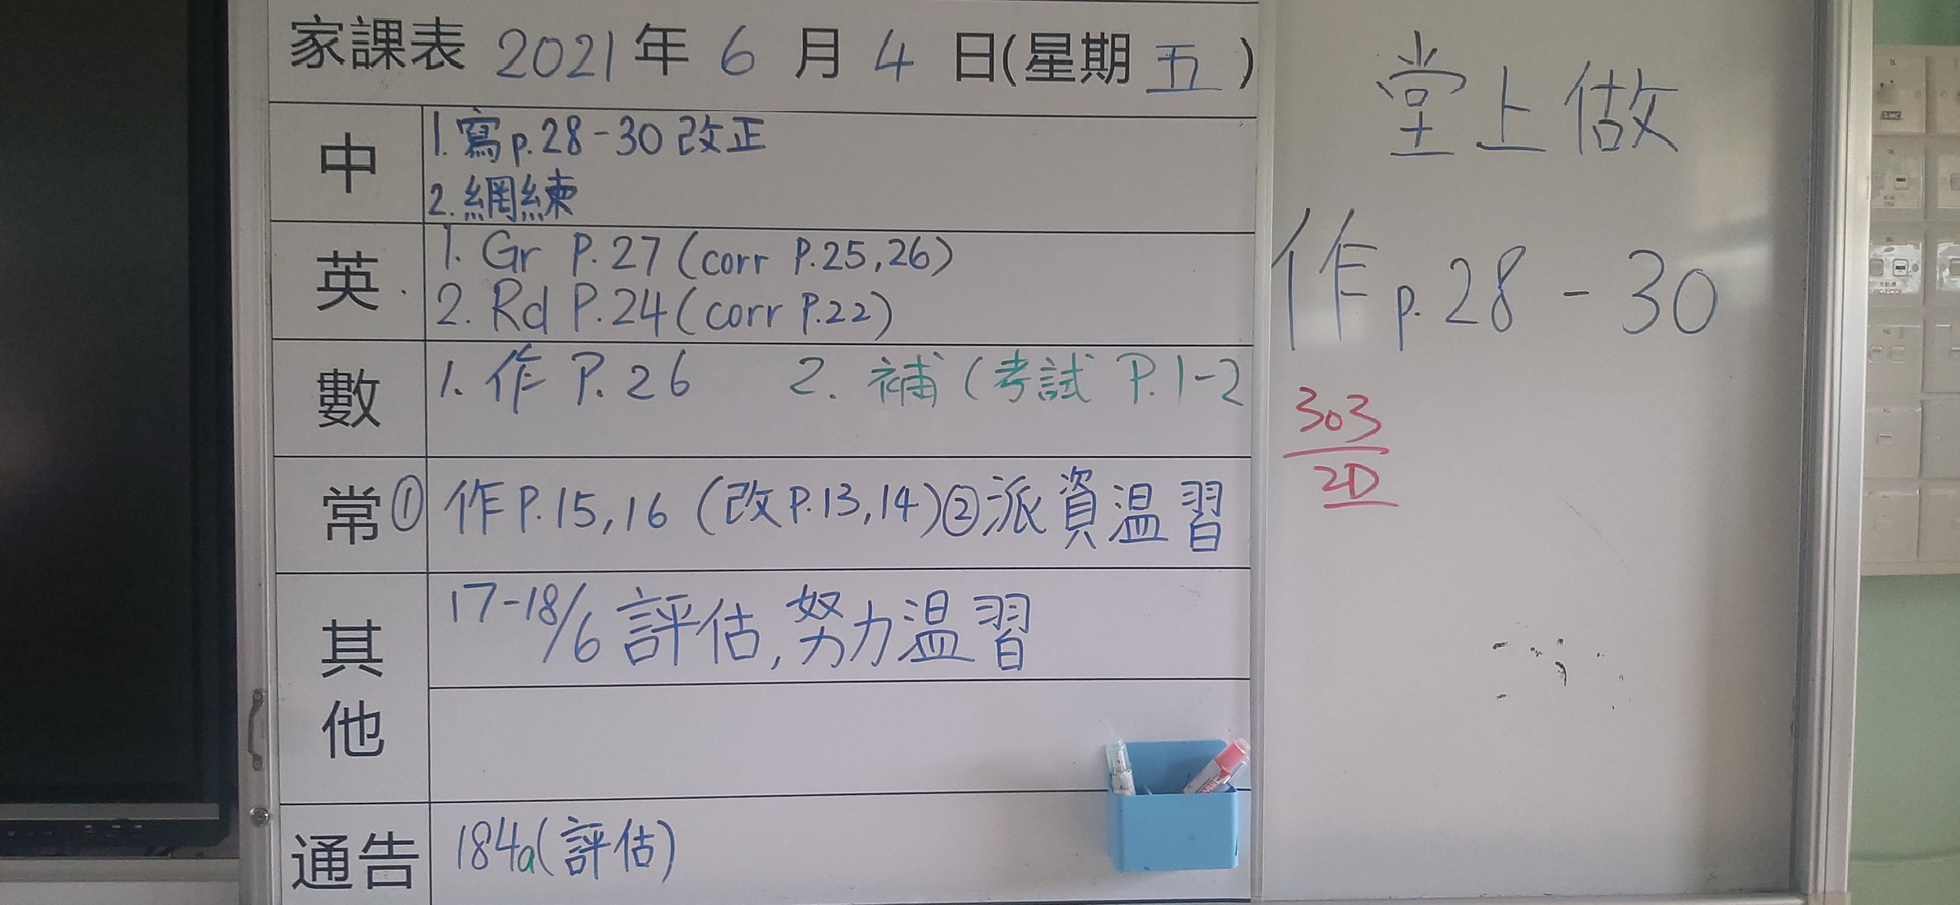 家課表 2021年 6 月 4 日(星期 五 )
中
1. 寫p.28-30 改正
2. 網練
英
1. Gr P.27 (corr P.25,26)
2. Rd P.24 (corr P.22)
數
1. 作 P.26 2. 補 (考試 P.1-2
常
① 作P.15,16 (改P.13,14)②派資温習
其他
17-18/6 評估, 努力温習
通告
184a(評估)
堂上做
作p.28-30
303
2D